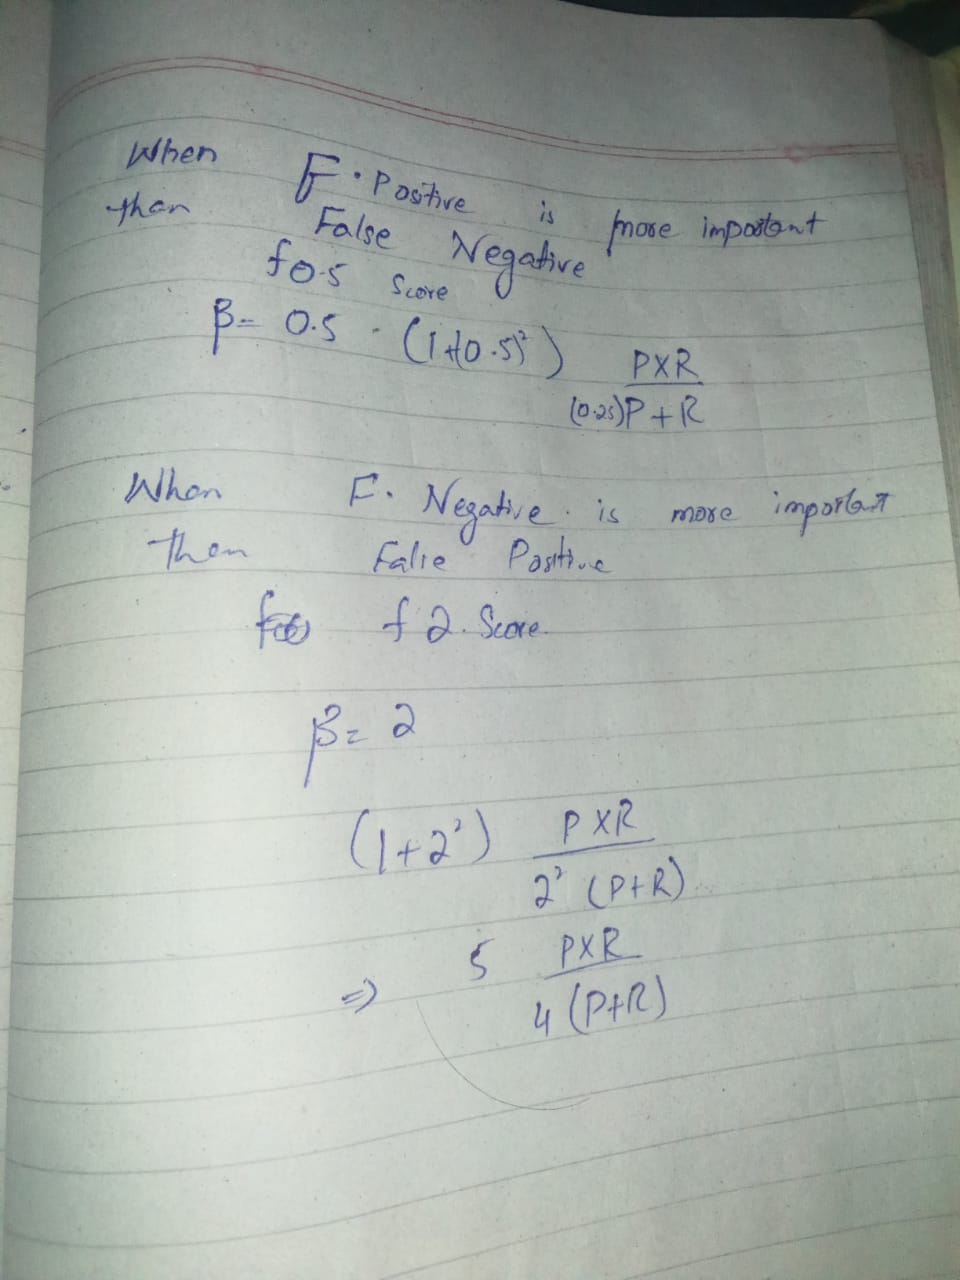 When F. Positive is more important
than False Negative
f0.5 Score
β = 0.5 . (1+(0.5)²) PXR / (0.25)P+R
When F. Negative. is more important
then False Positive
f 2. Score.
β = 2
(1+2²) PXR / 2² (P+R)
=> 5 PXR / 4 (P+R)